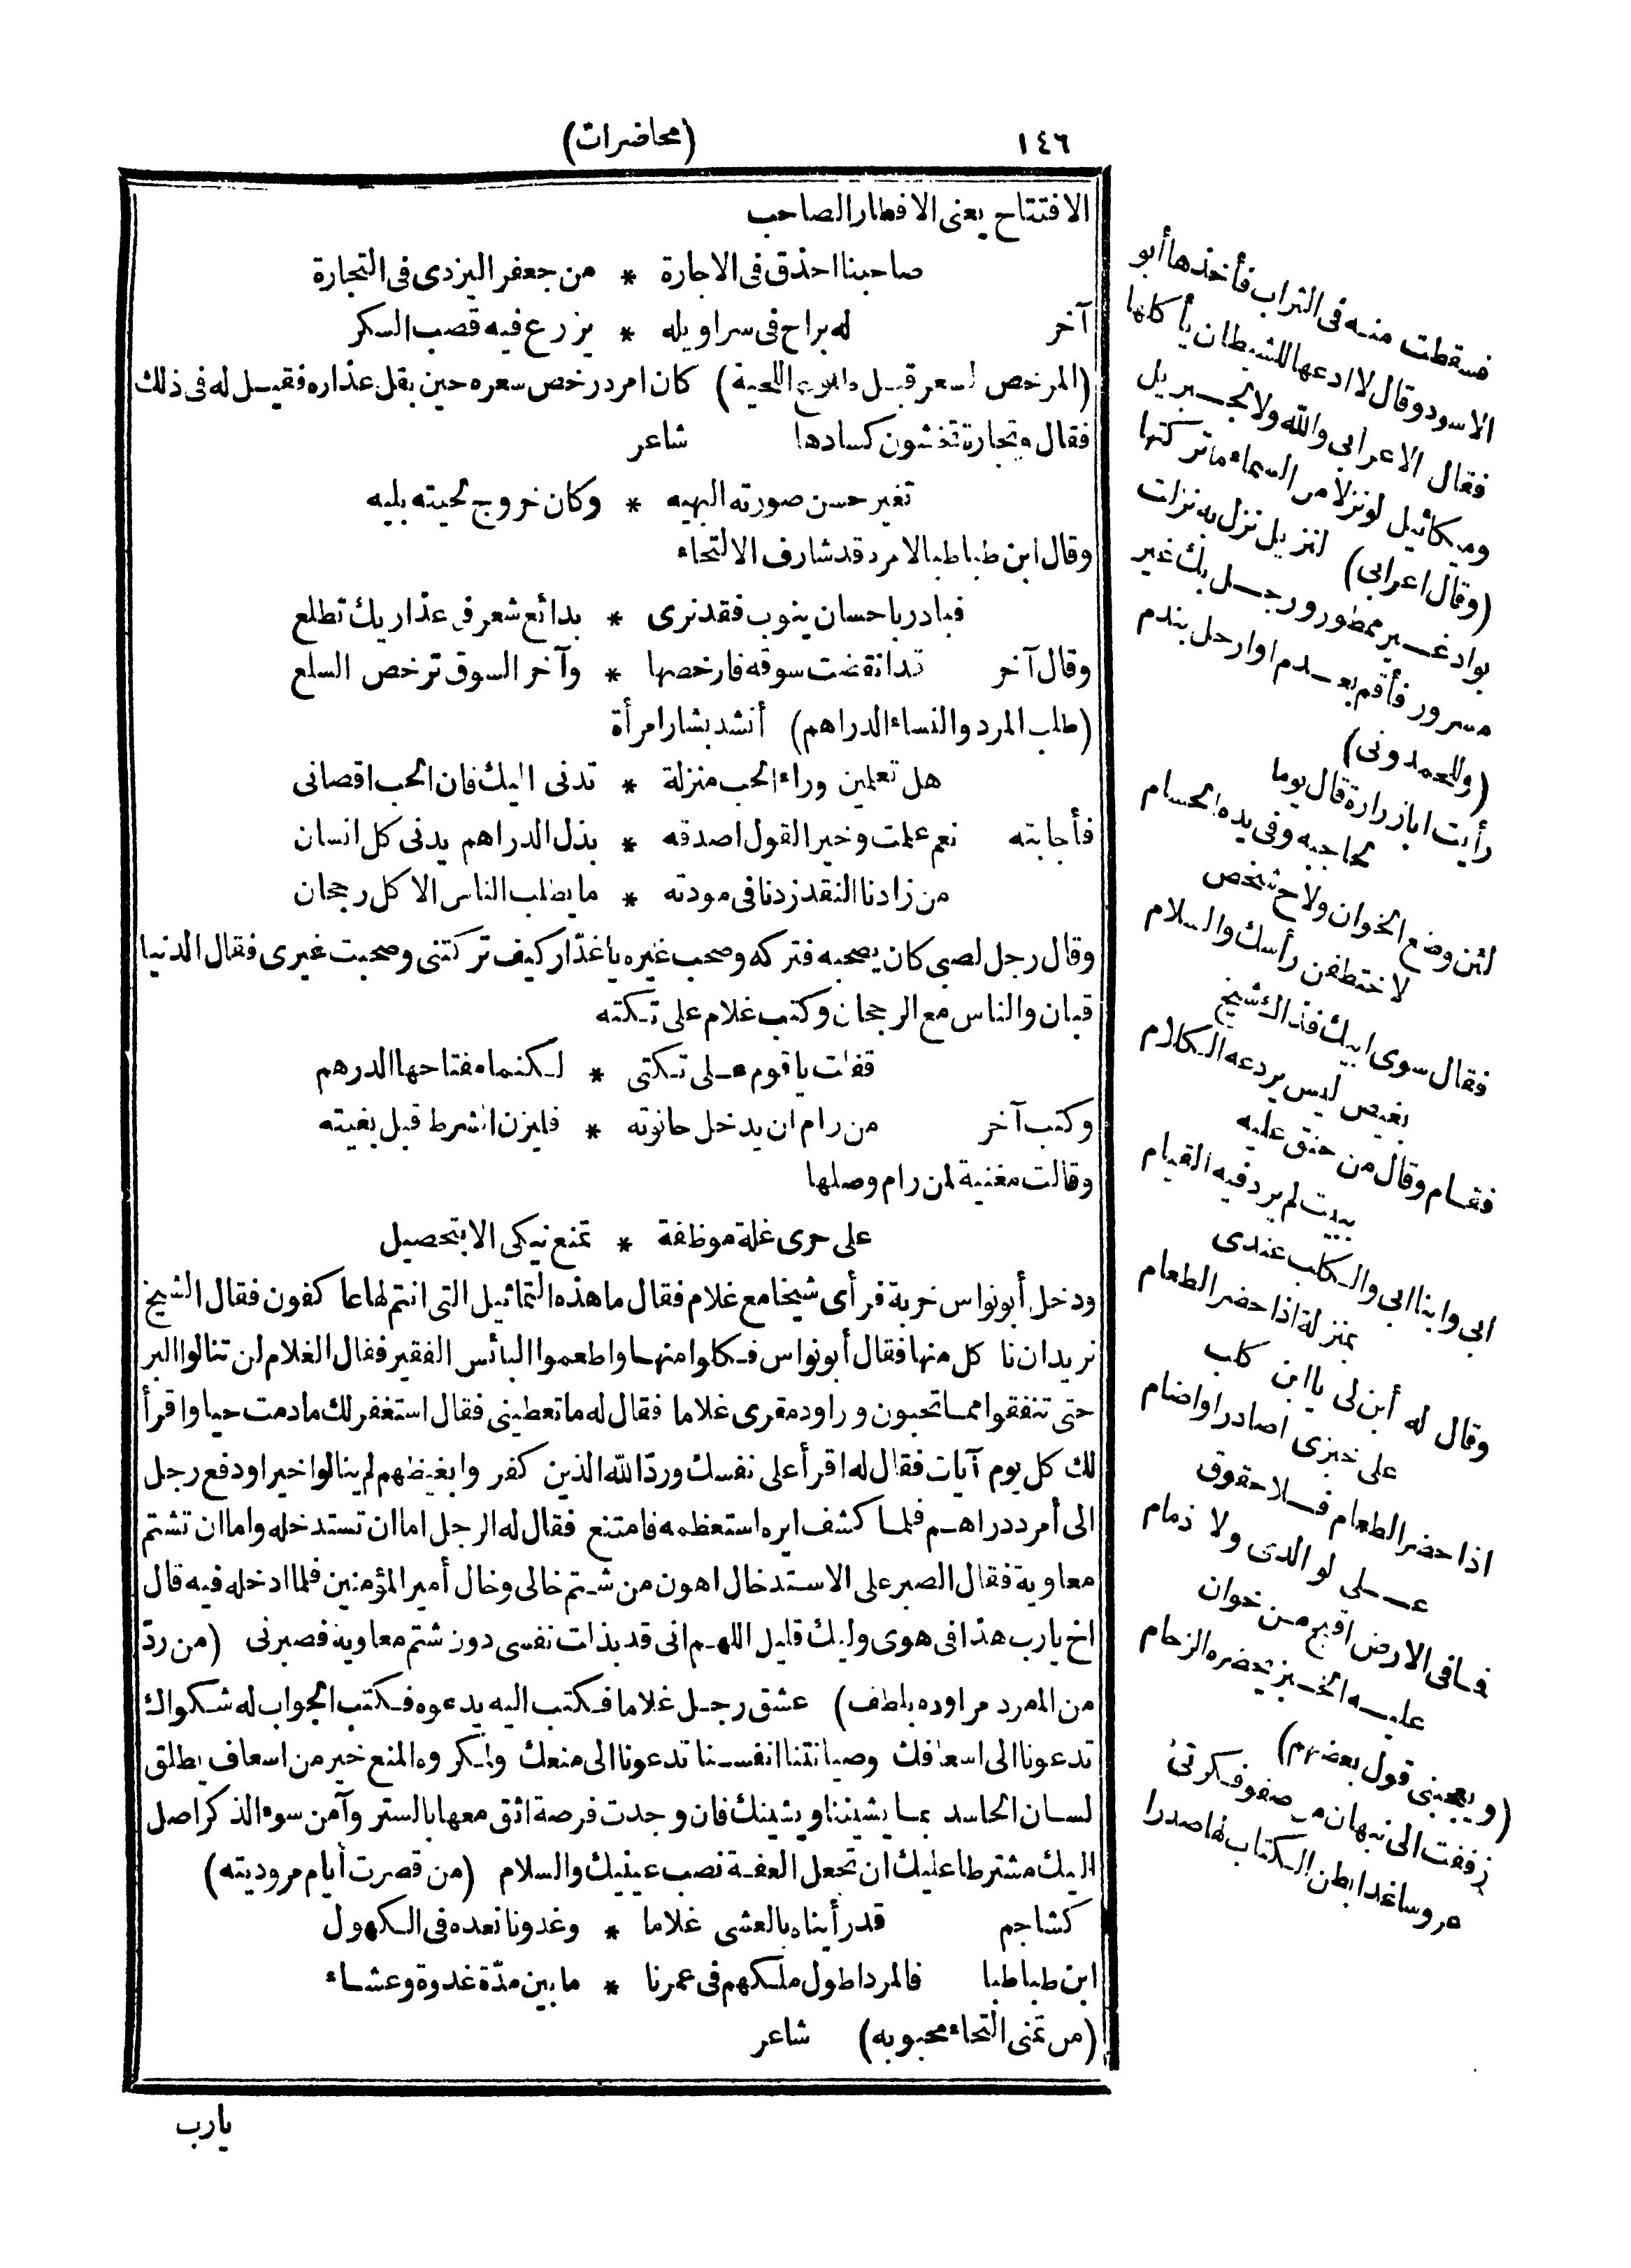 ١٤٦
(محاضرات)
الافتتاح يعنى الافطار الصاحب
صاحبنا احذق فى الاجارة * من جعفر اليزدى فى التجارة
آخر له براح فى سراويله * يزرع فيه قصب السكر
(المرخص لسعر قبل اللحية) كان امرد رخص سعره حين بقل عذاره فقيل له فى ذلك
فقال وتجارة تخشون كسادها شاعر
تغير حسن صورته البهيه * وكان خروج لحيته بليه
وقال ابن طباطبا لامرد قد شارف الالتحاء
فبادر باحسان ينوب فقد نرى * بدائع شعر فى عذاريك تطلع
وقال آخر سوقه فارخصها * وآخر السوق ترخص السلع
(طلب المرد والنساء الدراهم) أنشد بشار امرأة
هل تعلمين وراء الحب منزلة * تدنى اليك فان الحب اقصانى
فأجابته نعم علمت وخير القول اصدقه * بذل الدراهم يدنى كل انسان
من زادنا النقد زدنا فى مودته * ما يطلب الناس الا كل رجحان
وقال رجل لصبى كان يصحبه فتركه وصحب غيره يا غدّار كيف تركتنى وصحبت غيرى فقال الدنيا
قبان والناس مع الرجحان وكتب غلام على تكته
يا قوم على تكتى * لكنما مفتاحها الدرهم
وكتب آخر من رام ان يدخل حانوته * فليزن الشرط قبل بغيته
وقالت مغنية لمن رام وصلها
على حرى غلة موظفة * تمنع نيكى الا بتحصيل
ودخل أبو نواس خربة فرأى شيخا مع غلام فقال ما هذه التماثيل التى انتم لها عاكفون فقال الشيخ
نريد ان نأكل منها فقال أبو نواس فكلوا منها واطعموا البائس الفقير فقال الغلام لن تنالوا البر
حتى تنفقوا مما تحبون وراود مقرى غلاما فقال له ما تعطينى فقال استغفر لك ما دمت حيا واقرأ
لك كل يوم آيات فقال له اقرأ على نفسك وردّ الله الذين كفروا بغيظهم لم ينالوا خيرا ودفع رجل
الى أمرد دراهم فلما كشف ايره استعظمه فامتنع فقال له الرجل اما ان تستدخله واما ان تشتم
معاوية فقال الصبر على الاستدخال اهون من شتم خالى وخال أمير المؤمنين فلما ادخله فيه قال
اخ يا رب هذا فى هوى وليك قليل اللهم انى قد بذلت نفسى دون شتم معاوية فصبرنى (من ردّ
من المرد مراوده بلطف) عشق رجل غلاما فكتب اليه يدعوه فكتب الجواب له شكواك
تدعونا الى اسعافك وصيانتنا انفسنا تدعونا الى منعك ومكروه المنع خير من اسعاف يطلق
لسان الحاسد بما يشيننا ويشينك فان وجدت فرصة اثق معها بالستر وآمن سوء الذكر اصل
اليك مشترطا عليك ان تجعل العفة نصب عينيك والسلام (من قصرت أيام مروديته)
كشاجم قد رأيناه بالعشى غلاما * وغدونا نعده فى الكهول
ابن طباطبا فالمرد اطول ملكهم فى عمرنا * ما بين مدّة غدوة وعشاء
(من تمنى التحاء محبوبه) شاعر
يارب
فسقطت منه فى التراب فأخذها أبو
الاسود وقال لا ادعها للشيطان يأكلها
فقال الاعرابى والله ولا لجبريل
وميكائيل لو نزلا من السماء ما تركتها
(وقال اعرابى) لنزيل نزل به نزلت
بواد غير ممطور ورجل بك غير
مسرور فأقم بعدم او ارحل بندم
(وللحمدونى)
رأيت ابا زرارة قال يوما
لحاجبه وفى يده الحسام
لئن وضع الخوان ولاح شخص
لاختطفن رأسك والسلام
فقال سوى ابيك فذاك شيخ
بغيض ليس يردعه الكلام
فقام وقال من حنق عليه
ببيت لم يرد فيه القيام
ابى وابنا ابى والكلب عندى
بمنزلة اذا حضر الطعام
وقال له أبن لى يا ابن كلب
على خبزى اصادر او اضام
اذا حضر الطعام فلا حقوق
على لوالدى ولا ذمام
فما فى الارض اقبح من خوان
عليه الخبز يحضره الزحام
(ويعجبنى قول بعضهم)
زففت الى نبهان من صفو فكرتى
عروسا غدا بطن الكتاب لها صدرا